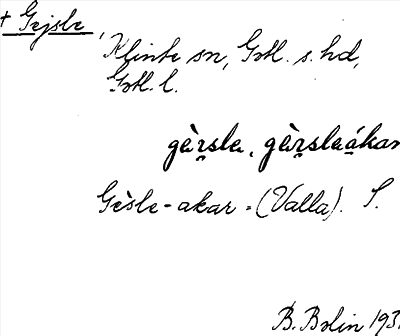 + Gejsle,
Klinte sn, Gotl. s. hd,
Gotl. l.
gèr̯sle, gèr̯sleákar
Gèsle-akar - (Valla). S.
B. Bolin 193